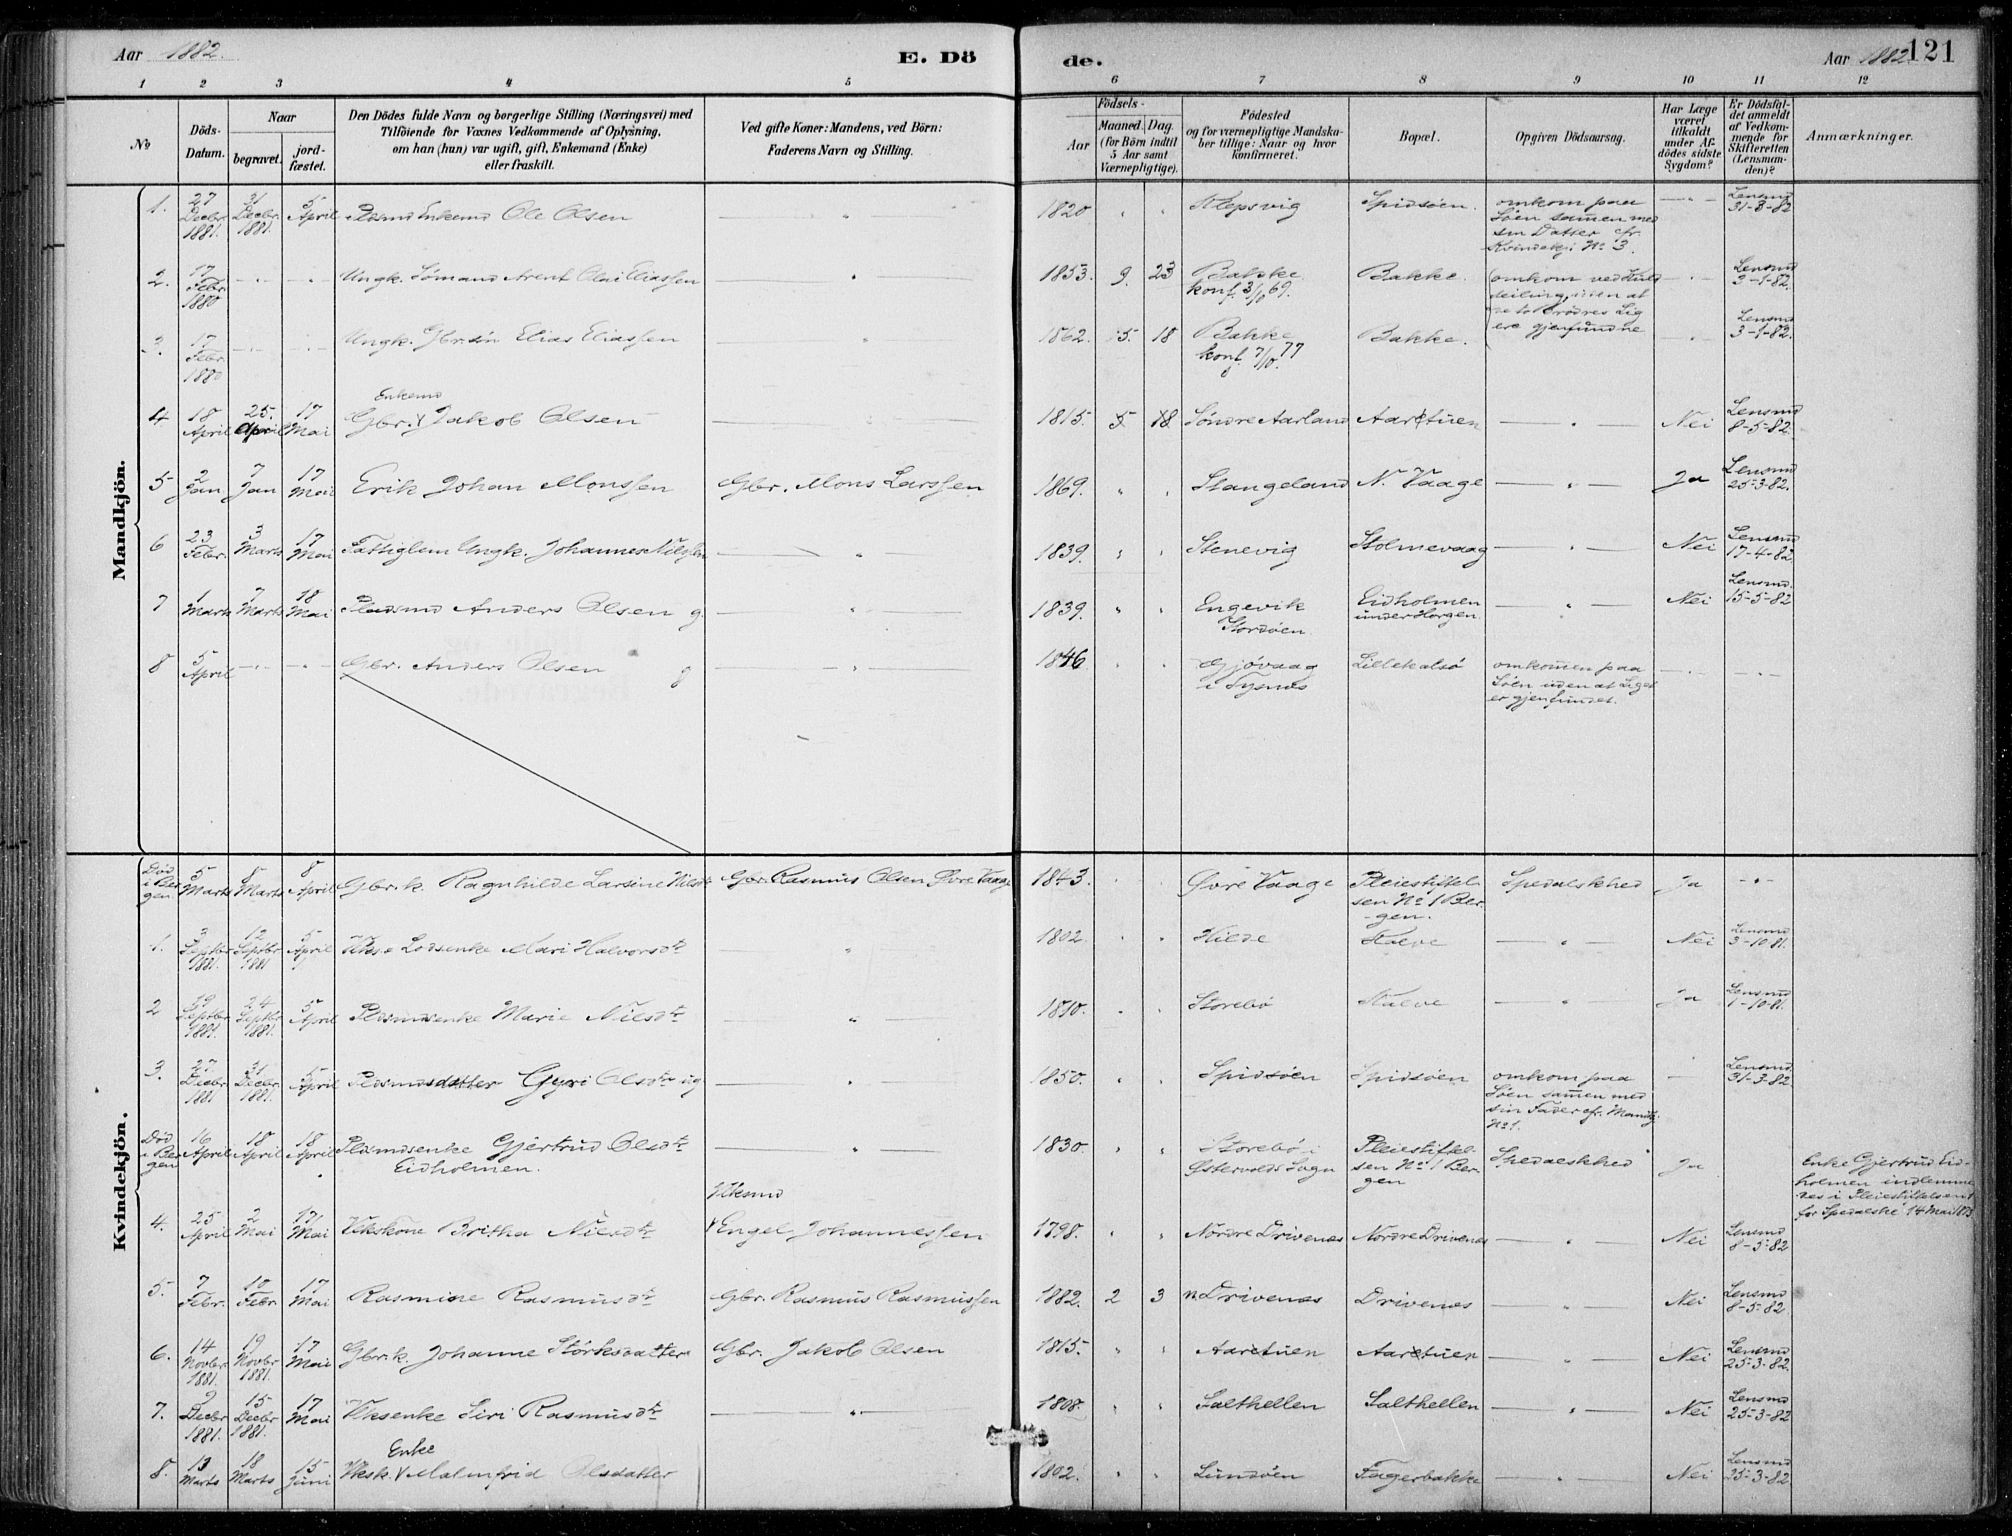 Aar 1882. E. Dö de. Aar 1882. 121
1 2 3 4 5 6 7 8 9 10 11 12
No
Döds-Datum.
Naar
begravet.
jord-fæstet.
Den Dödes fulde Navn og borgerlige Stilling (Næringsvei) med
Tilföiende for Voxnes Vedkommende af Oplysning,
om han (hun) var ugift, gift, Enkemand (Enke)
eller fraskilt.
Ved gifte Koner: Mandens, ved Börn:
Faderens Navn og Stilling.
Födsels-
Aar
Maaned. Dag.
(for Börn indtil
5 Aar samt
Værnepligtige).
Födested
og for værnepligtige Mandska-
ber tillige: Naar og hvor
konfirmeret.
Bopæl.
Opgiven Dödsaarsag.
Har Læge
været
tilkaldt
under Af-
dödes sidste
Sygdom?
Er Dödsfal-
det anmeldt
af Vedkom-
mende for
Skifteretten
(Lensman-
den)?
Anmærkninger.
Mandkjön.
1. 27 Decbr. 1881. 31 Decbr. 1881. 5 April Pldsmd Enkemd Ole Olsen — " — 1820 " " Klepsvig Spidsöen. omkom paa
Söen sammen med
sin Datter cfr.
Kvindekj. No 3. — " — Lensmd 31-3-82
2. 17 Febr. 1880 — " — " Ungk. Sömand Arent Olai Eliassen — " — 1853. 9. 23 Bakke
konf. 3/10 69. Bakke. omkom ved
seiling, uden at
de to Brödres Lig
ere gjenfundne — " — Lensmd 3-1-82.
3. 17 Febr. 1880 — " — " Ungk. Gbr.sön Elias Eliassen — " — 1862. 5. 18 Bakke
konf. 7/10 77 Bakke. — " — Lensmd 3-1-82.
4 18 April 25. April 17 Mai Enkemd
Gbr. Jakob Olsen — " — 1815. 5. 18 Söndre Aarland Aaretuen — " — Nei Lensmd 8-5-82.
5 2 Jan 7 Jan 17 Mai Erik Johan Monssen Gbr. Mons Larssen 1869. " " Stangeland N. Vaage — " — Ja Lensmd 25-3-82.
6 23 Febr. 3 Marts 17 Mai Fattiglem Ungk. Johannes Nilssen — " — 1839. " " Stenevig Stolmevaag — " — Nei Lensmd 17-4-82
7 1 Marts 7 Marts 18 Mai Pladsmd Anders Olsen g. — " — 1839. " " Engevik
Stordöen Eidholmen
under Horgen — " — Nei Lensmd. 15-5-82
8 5 April — " — — " — Gbr. Anders Olsen g — " — 1846 " " Gjövaag
i Tysnes Lillekalsö omkommen paa
Söen uden at Liget
er gjenfundet. — " — — " —
Kvindekjön.
Död
i Ber-
gen. 5 Marts 5 Marts 8 April Gbr.k. Ragnhilde Larsine Nilsdtr Gbr. Rasmus Olsen Övre Vaage 1843. Övre Vaage Pleiestiftel-
sen No 1 Ber-
gen. Spedalskhed Ja — " —
1. 3 Septbr 1881. 12 Septbr 1881 5 April Lodsenke Mari Halvorsdtr — " — 1802 " " Hilde — " — Nei Lensmd 3-10-81.
2 19 Septbr 1881. 24 Septbr 1881. 5 April Pldsmdsenke Marie Nilsdtr — " — 1810. " " Storebö — " — Ja Lensmd 1-10-81.
3. 27 Decbr 1881 31 Decbr. 1881. 5 April Pldsmdsdatter Gyri Olsdtr ug — " — 1850. " " Spidsöen Spidsöen omkom paa
Söen sammen med
sin Fader cfr. Mandkj
No 1. — Lensmd. 31-3-82
Död
i Ber-
gen 16 April 18 April 18 April Pldsmdsenke Gjertrud Olsdtr
Eidholmen. — " — 1830. " " Storebö i
Östervolds Sogn Pleiestiftel-
sen No 1 Ber-
gen Spedalskhed Ja Enke Gjertrud Eid-
holmen indlemme-
des i Pleiestiftelsen
for Spedalske 14 Mai
4. 25 April 2 Mai 17 Mai Vkskone Britha Nilsdtr Vksmd
Engel Johannessen 1798. " " Nordre Drivenes Nordre Drivenes — " — Nei Lensmd 8-5-82
5. 7 Febr. 10 Febr 17 Mai Rasmine Rasmusdtr Gbr. Rasmus Rasmussen 1882. 2 3 n. Drivenes Drivenes — " — Nei Lensmd 8-5-82
6. 14 Novbr 1881. 19 Novbr 1881. 17 Mai Gbr.k. Johanne Störksdatter Gbr. Jakob Olsen 1815. " " Aaretuen Aaretuen — " — Nei Lensmd 25-3-82.
7. 9 Decbr 1881. 15 Decbr 1881. 17 Mai Vksenke Siri Rasmusdtr — " — 1808. " " Salthellen Salthellen — " — Nei Lensmd 25-3-82
8. 13 Marts 18 Marts 15 Juni Enke
Vksk. Malmfrid Olsdatter 1802. " " Lundöen Fagerbakke — " — Nei Lensmd 25-3-82